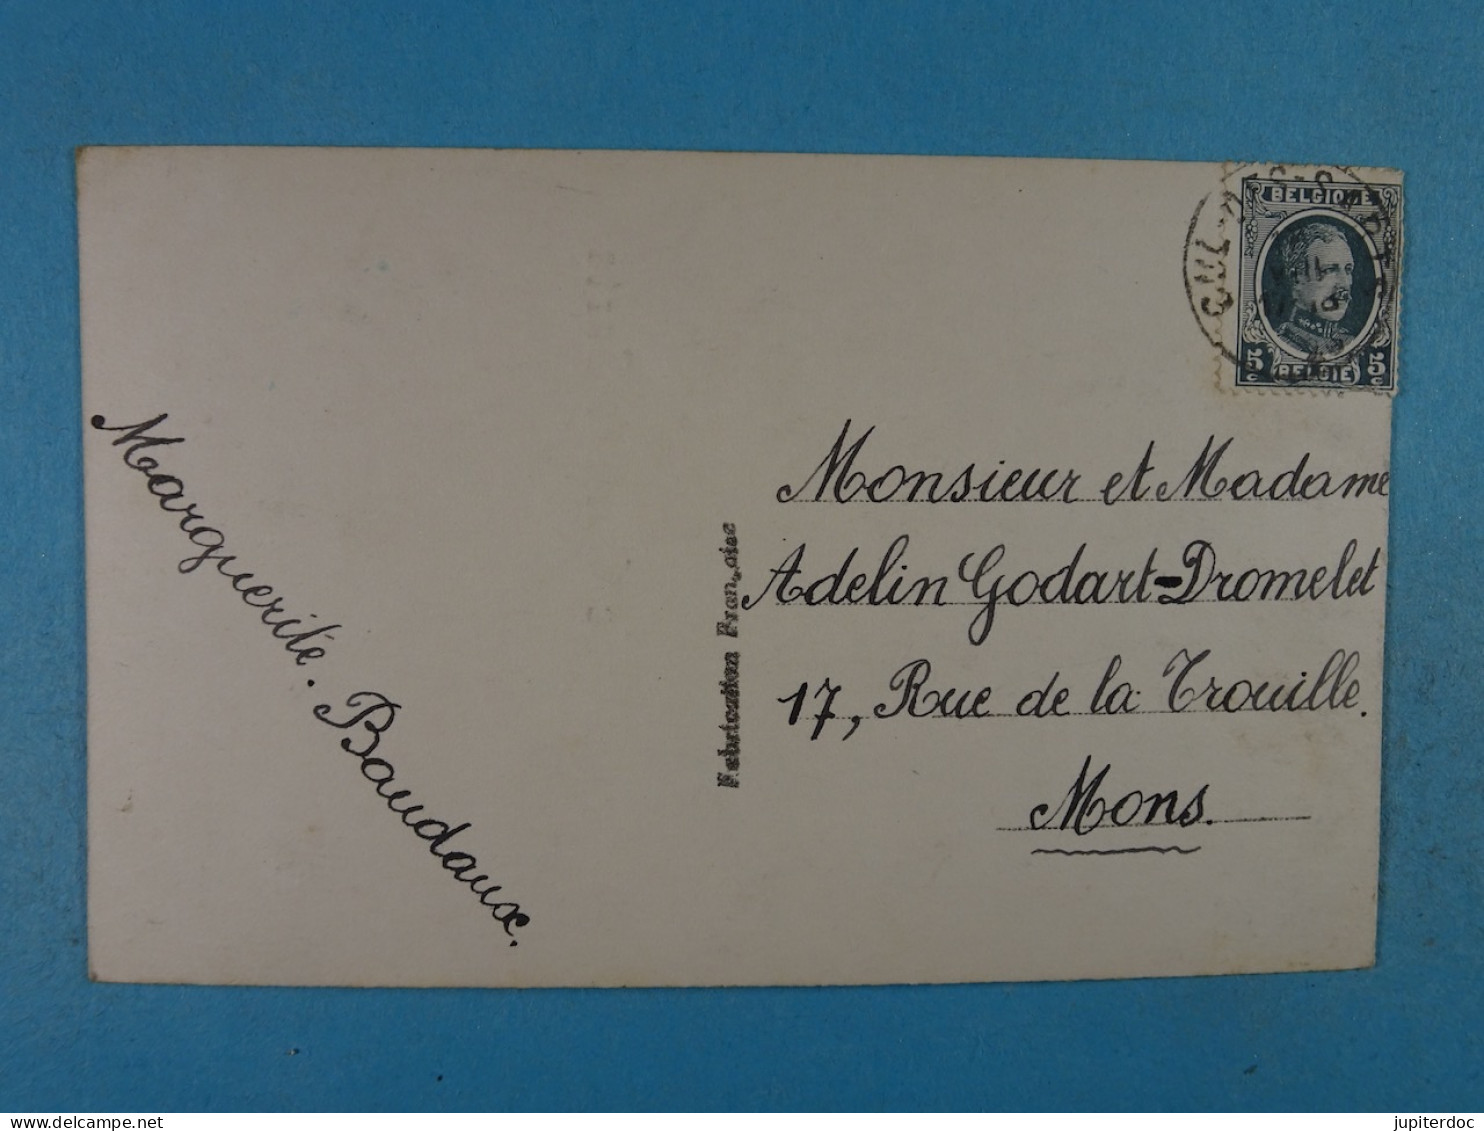 Marguerite. Baudaux.
Fabrication Française
CUL-DES-SARTS
BELGIQUE
5c 5c
BELGIE
Monsieur et Madame
Adelin Godart-Dromelet
17, Rue de la Trouille.
Mons.
delcampe.net
jupiterdoc